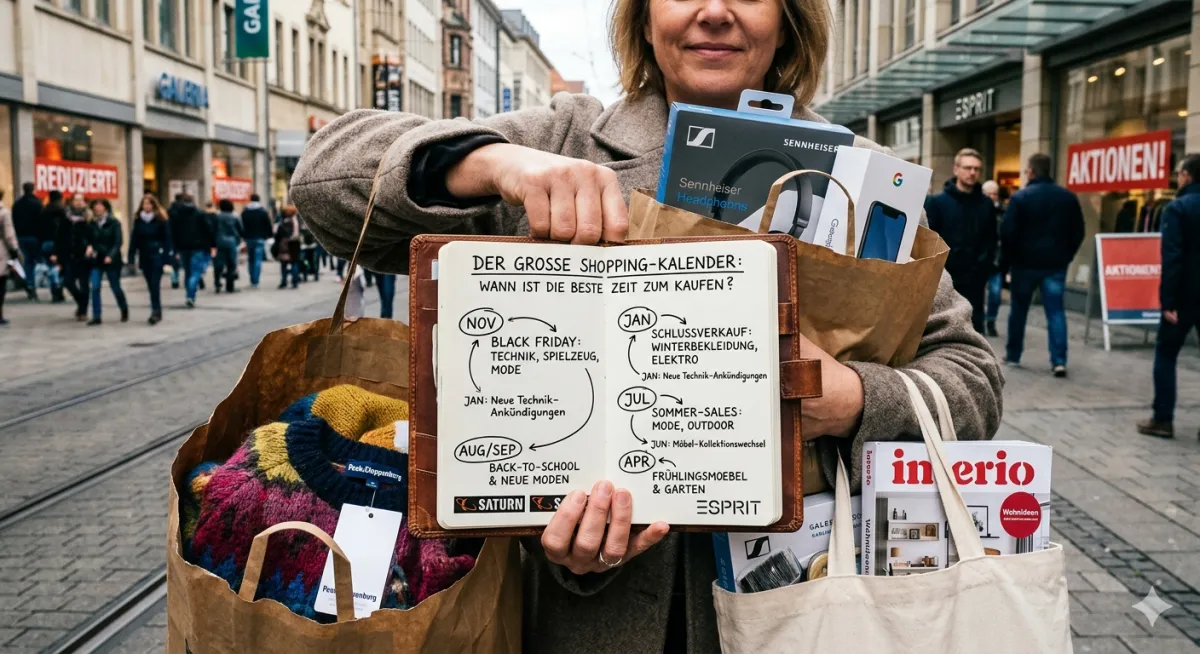 GAL
GALERIA
REDUZIERT!
REDUZIERT!
ESPRIT
AKTIONEN!
AKTIONEN!
SENNHEISER
Sennheiser
Headphones
G
DER GROSSE SHOPPING-KALENDER:
WANN IST DIE BESTE ZEIT ZUM KAUFEN?
NOV
BLACK FRIDAY:
TECHNIK, SPIELZEUG,
MODE
JAN: Neue Technik-
Ankündigungen
AUG/SEP
BACK-TO-SCHOOL
& NEUE MODEN
SATURN
ESPRIT
JAN
SCHLUSSVERKAUF:
WINTERBEKLEIDUNG,
ELEKTRO
JAN: Neue Technik-Ankündigungen
JUL
SOMMER-SALES:
MODE, OUTDOOR
JUN: Möbel-Kollektionswechsel
APR
FRÜHLINGSMOEBEL
& GARTEN
Wohnideen